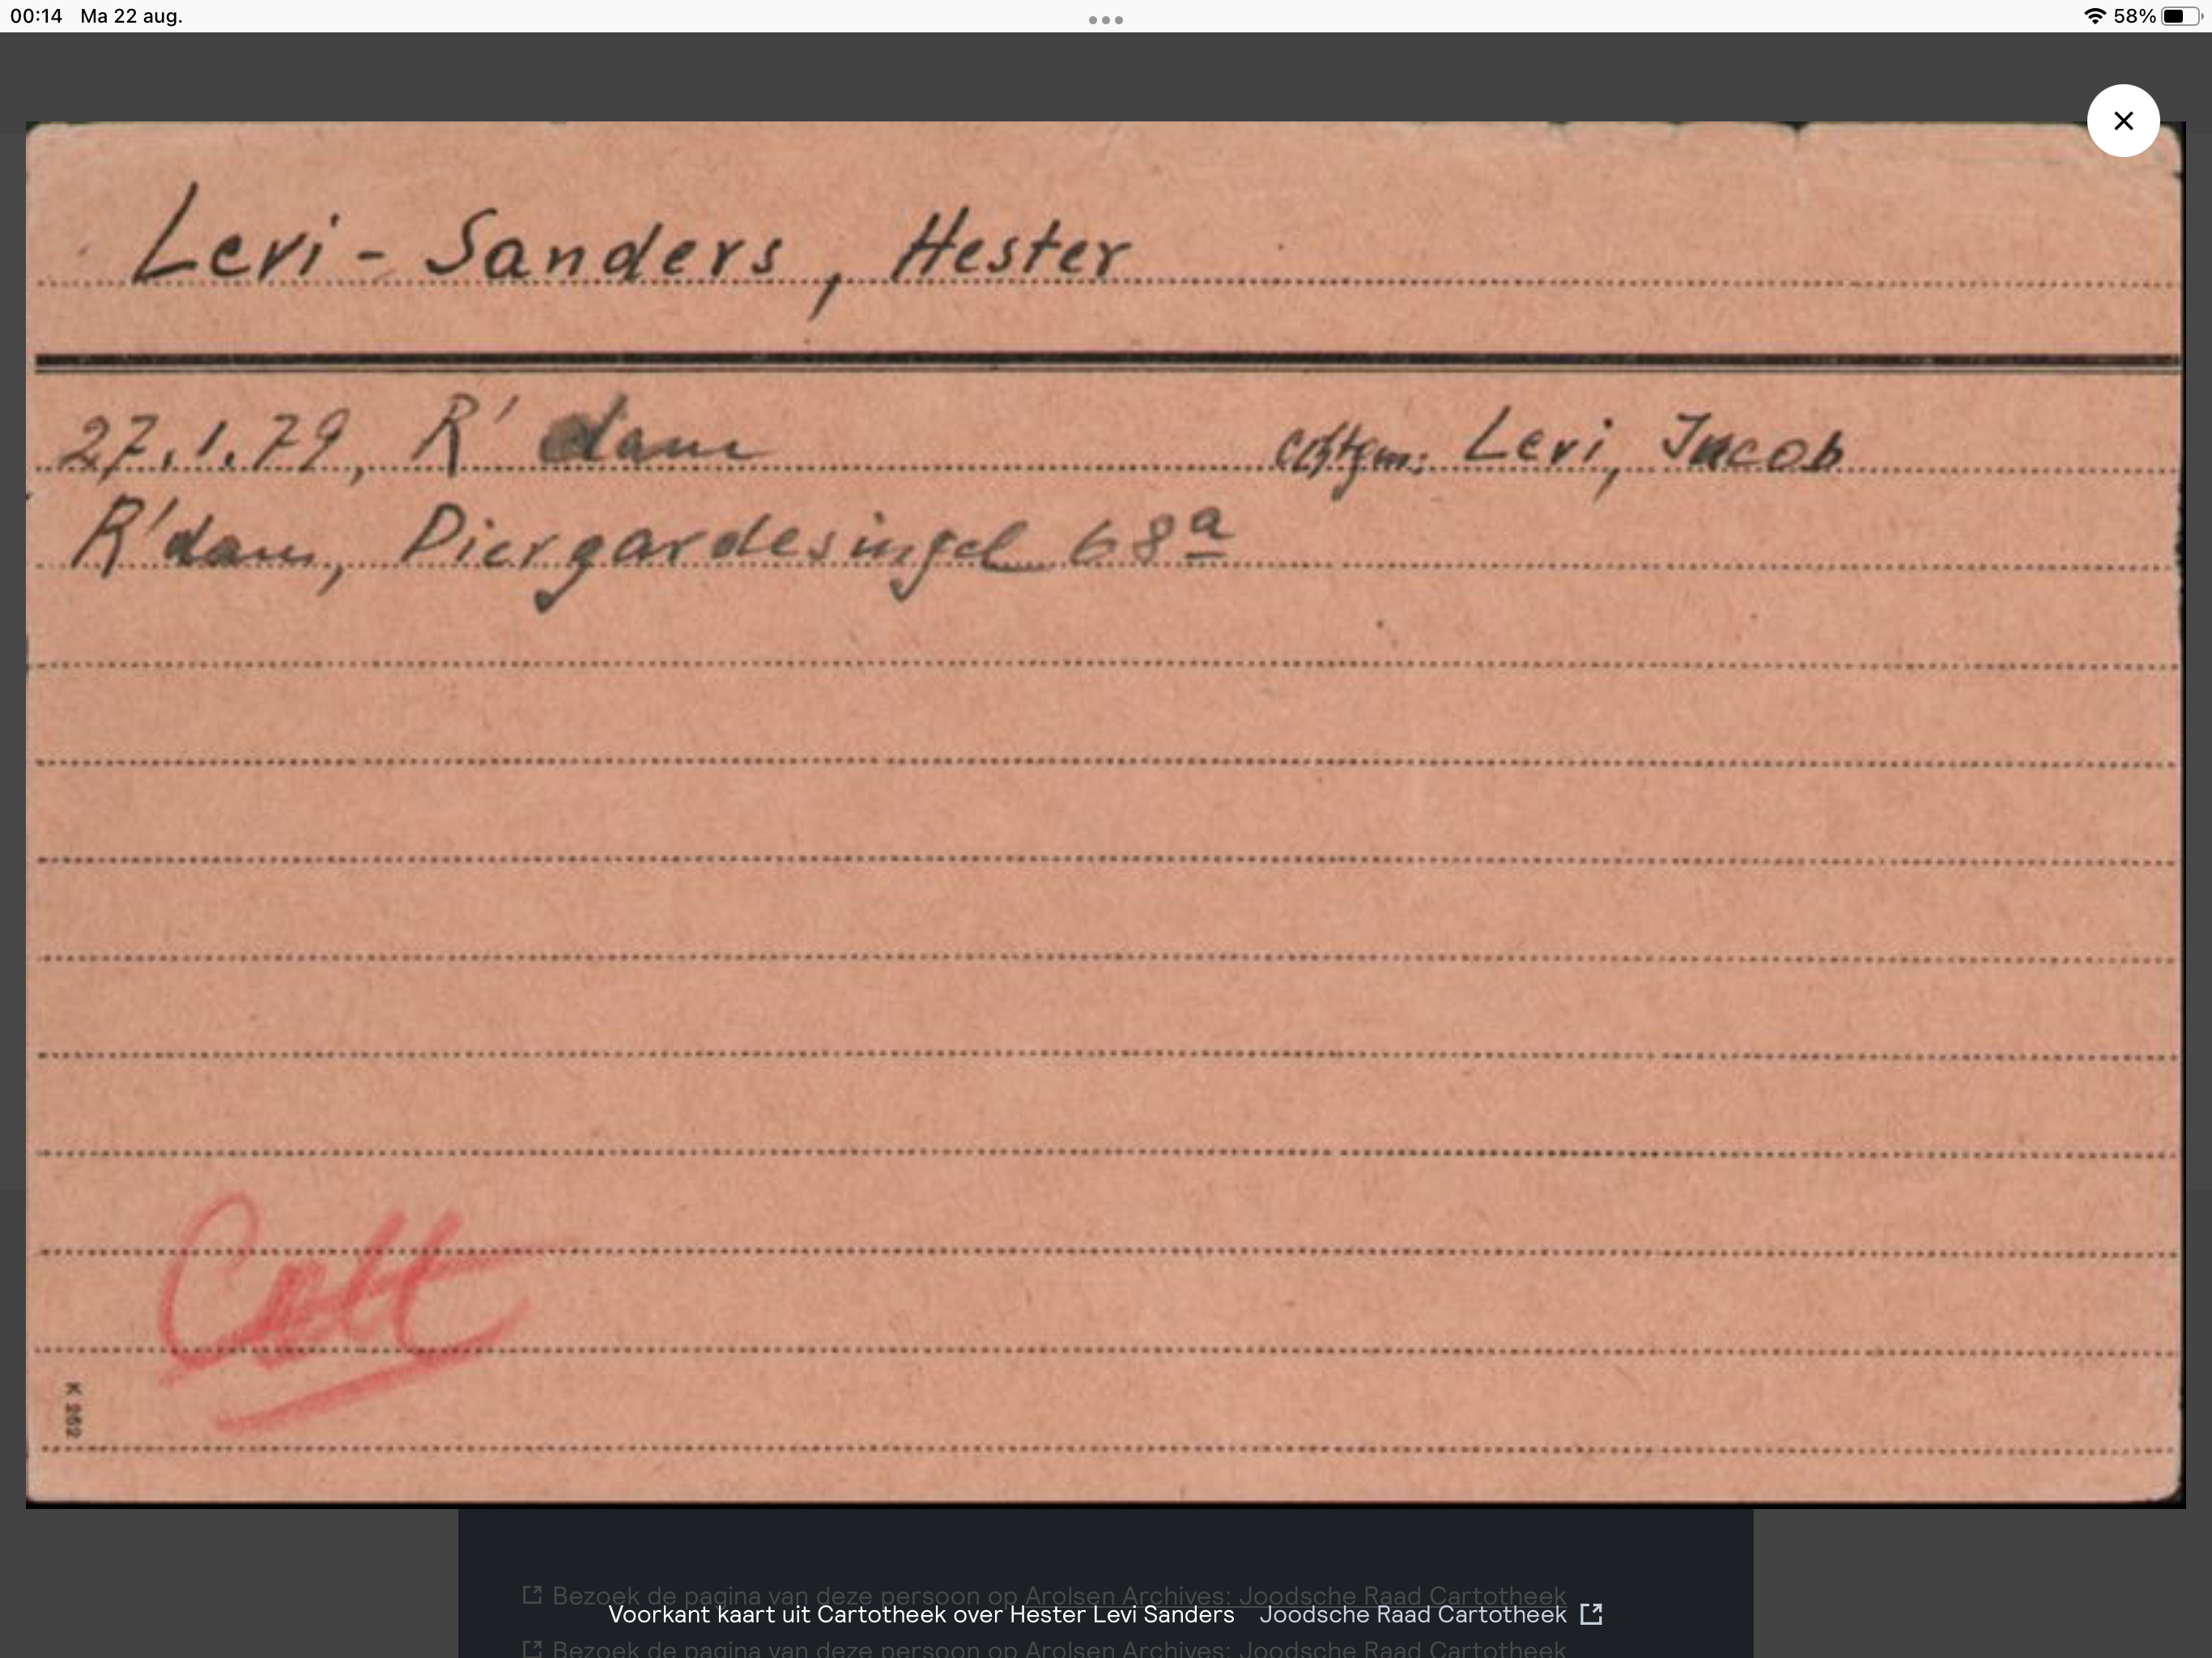 00:14 Ma 22 aug. 58%
Levi - Sanders, Hester
27.1.79, R'dam echtgen: Levi, Jacob
R'dam, Diergardesingel 68a
K 262
Bezoek de pagina van deze persoon op Arolsen Archives: Joodsche Raad Cartotheek
Voorkant kaart uit Cartotheek over Hester Levi Sanders Joodsche Raad Cartotheek
Bezoek de pagina van deze persoon op Arolsen Archives: Joodsche Raad Cartotheek